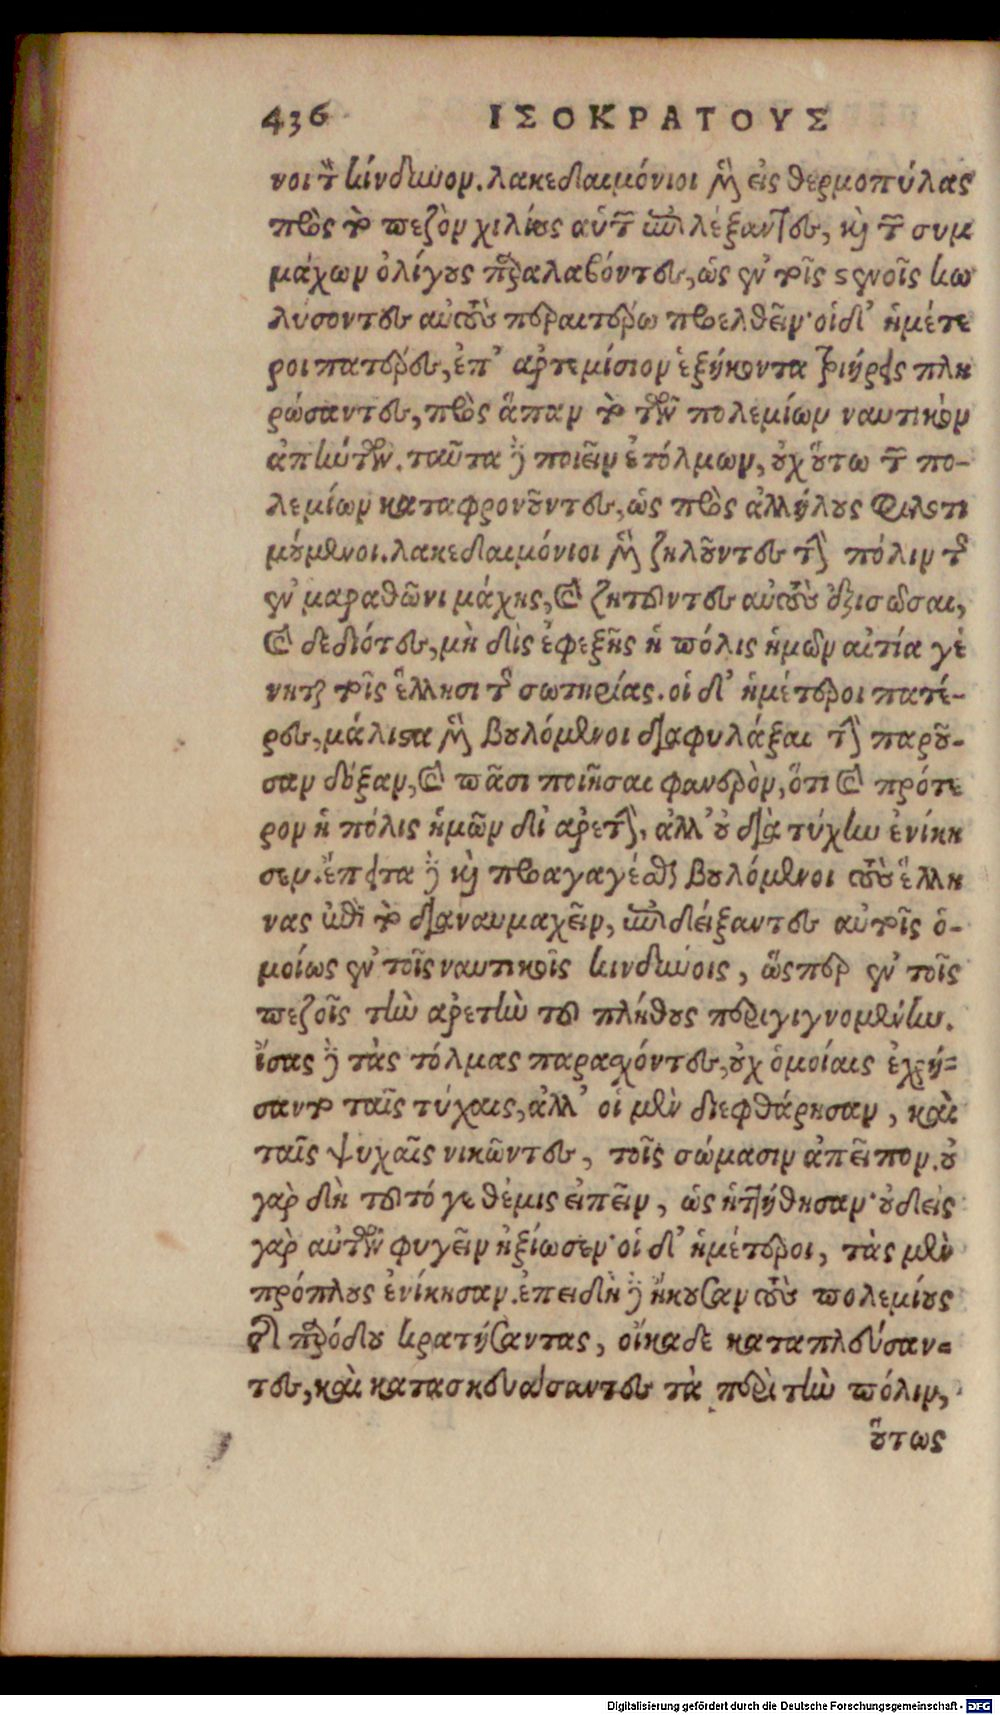 436 ΙΣΟΚΡΑΤΟΥΣ
νοι τὸν κίνδυνον. λακεδαιμόνιοι μὲν εἰς θερμοπύλας
πρὸς τὸ πεζὸν χιλίους αὑτῶν ἐπιλέξαντες, καὶ τῶν συμ
μάχων ὀλίγους παραλαβόντες, ὡς ἐν τοῖς στενοῖς κω
λύσοντες αὐτοὺς περαιτέρω προελθεῖν· οἱ δ' ἡμέτε
ροι πατέρες, ἐπ' ἀρτεμίσιον ἑξήκοντα τριήρεις πλη
ρώσαντες, πρὸς ἅπαν τὸ τῶν πολεμίων ναυτικὸν
ἀπήντων. ταῦτα δὲ ποιεῖν ἐτόλμων, οὐχ οὕτω τῶν πο-
λεμίων καταφρονοῦντες, ὡς πρὸς ἀλλήλους φιλοτι
μούμενοι. λακεδαιμόνιοι μὲν ζηλοῦντες τὴν πόλιν τῆς
ἐν μαραθῶνι μάχης, καὶ ζητοῦντες αὑτοὺς ἐξισῶσαι,
καὶ δεδιότες, μὴ δὶς ἐφεξῆς ἡ πόλις ἡμῶν αἰτία γέ
νηται τοῖς ἕλλησι τῆς σωτηρίας. οἱ δ' ἡμέτεροι πατέ-
ρες, μάλιστα μὲν βουλόμενοι διαφυλάξαι τὴν παροῦ-
σαν δόξαν, καὶ πᾶσι ποιῆσαι φανερὸν, ὅτι καὶ πρότε
ρον ἡ πόλις ἡμῶν δι' ἀρετὴν, ἀλλ' οὐ διὰ τύχην ἐνίκη
σεν. ἔπειτα δὲ καὶ προαγαγέσθαι βουλόμενοι τοὺς ἕλλη
νας ἐπὶ τὸ διαναυμαχεῖν, ἐπιδείξαντες αὐτοῖς ὁ-
μοίως ἐν τοῖς ναυτικοῖς κινδύνοις, ὥσπερ ἐν τοῖς
πεζοῖς τὴν ἀρετὴν τοῦ πλήθους περιγιγνομένην.
ἴσας δὲ τὰς τόλμας παρασχόντες, οὐχ ὁμοίαις ἐχρή-
σαντο ταῖς τύχαις, ἀλλ' οἱ μὲν διεφθάρησαν, καὶ
ταῖς ψυχαῖς νικῶντες, τοῖς σώμασιν ἀπεῖπον. οὐ
γὰρ δὴ τοῦτό γε θέμις εἰπεῖν, ὡς ἡττήθησαν· οὐδεὶς
γὰρ αὐτῶν φυγεῖν ἠξίωσεν· οἱ δ' ἡμέτεροι, τὰς μὲν
πρόπλους ἐνίκησαν. ἐπειδὴ δὲ ἤκουσαν τοὺς πολεμίους
τῆς παρόδου κρατήσαντας, οἴκαδε καταπλεύσαν-
τες, καὶ κατασκευάσαντες τὰ περὶ τὴν πόλιν,
οὕτως
Digitalisierung gefördert durch die Deutsche Forschungsgemeinschaft - DFG